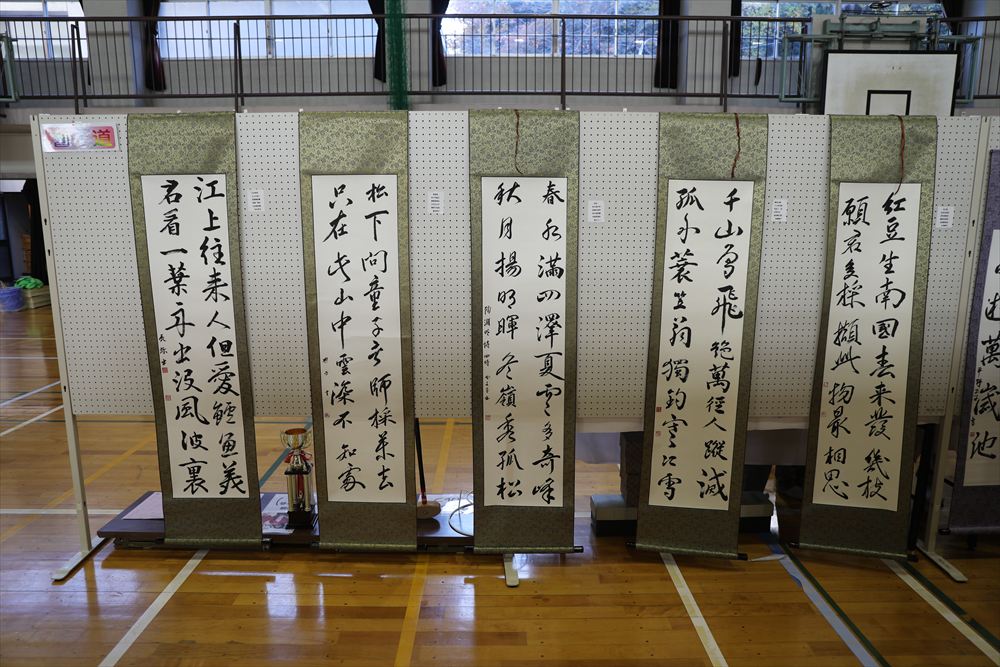 道
江上往来人但愛鱸魚美
君看一葉舟出没風波裏
松下問童子言師採薬去
只在此山中雲深不知處
春水満四澤夏雲多奇峰
秋月揚明暉冬嶺秀孤松
陶淵明詩 四時
千山鳥飛絶萬徑人蹤滅
孤舟蓑笠翁獨釣寒江雪
紅豆生南國春来發幾枝
願君多採擷此物最相思